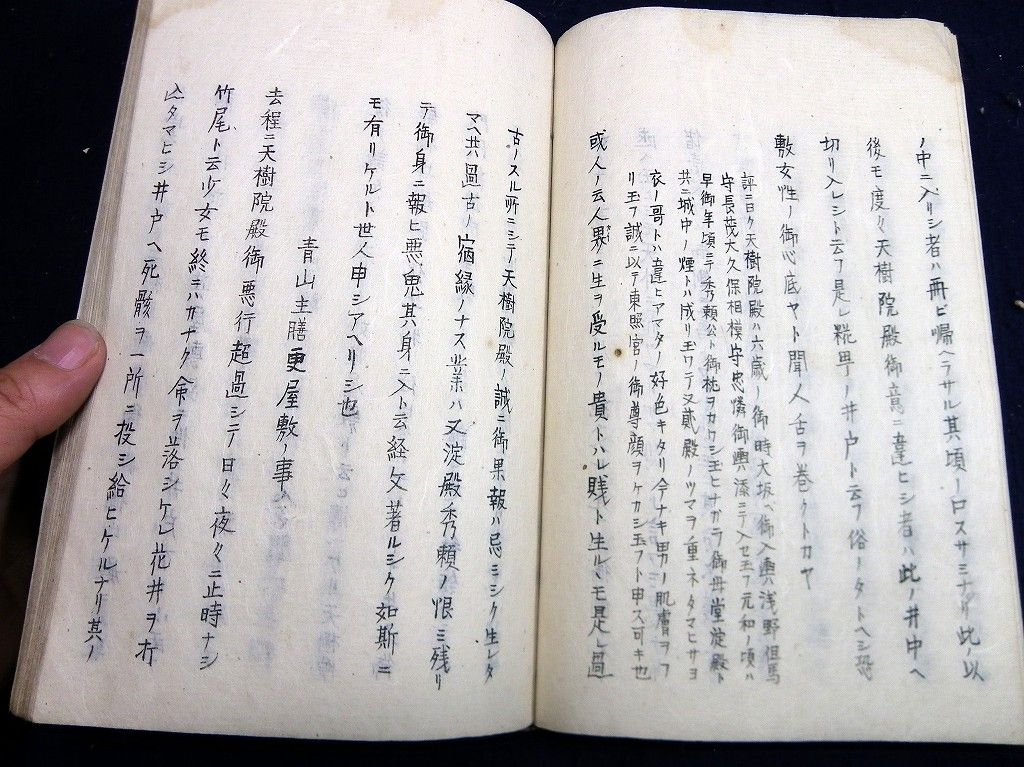 ノ中ニ入リシ者ハ再ビ帰ヘラサル其頃一口スサミナリ此ノ以
後モ度々天樹院殿御意ニ違ヒシ者ハ此ノ井中ヘ
切リ入レシト云フ是レ糀甼ノ井戸ト云フ俗ノタトヘシ恐
敷女性ノ御心底ヤト聞人舌ヲ巻クトカヤ
評ニ曰ク天樹院殿ハ六歳ノ御時大坂ヘ御入輿ハ浅野但馬
守長茂大久保相模守忠憐御輿添ニテ入セ玉フ元和ノ頃ハ
早御年頃ニテ秀頼公ト御枕ヲカワシ玉ヒナガラ御母堂淀殿ト
共ニ城中ノ煙トハ成リ玉ワテ又貮殿ノツマヲ重ネタマヒサヨ
衣ノ哥トハ違ヒアマタノ好色キタリ今ナキ男ノ肌膚ヲフ
リ玉フ誠ニ以テ東照宮ノ御尊顔ヲケカシ玉フト申ス可キ也
或人ノ云人界ニ生ヲ受ルモノ貴トハレ賎ト生ルヽモ是レ過
古ノスル所ニシテ天樹院殿ノ誠ニ御果報ハ忌ミシク生レタ
マヘ共過古ノ宿縁ノナス業ハ又淀殿秀頼ノ恨ミ残リ
テ御身ニ報ヒ悪鬼其身ニ入ト云経文著ルシク如斯ニ
モ有リケルト世人申シアヘリシ也
青山主膳更屋敷ノ事
去程ニ天樹院殿御悪行超過シテ日々夜々ニ止時ナシ
竹尾ト云少女モ終ニハカナク命ヲ落シケレ花井ヲ打
込タマヒシ井戸ヘ死骸ヲ一所ニ投シ給ヒケルナリ其ノ